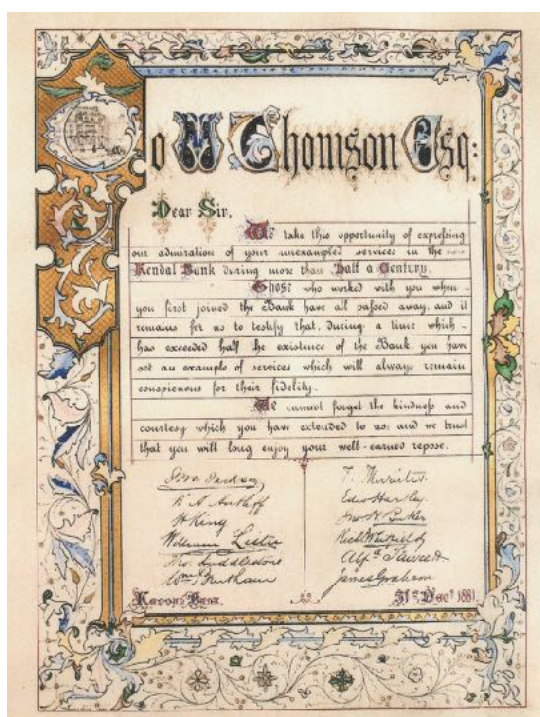 To W Thomson Esq:
Dear Sir,
We take this opportunity of expressing
our admiration of your unexampled services in the
Kendal Bank during more than Half a Century.
Those who worked with you when
you first joined the Bank have all passed away, and it
remains for us to testify that, during a time which
has exceeded half the existence of the Bank you have
set an example of services which will always remain
conspicuous for their fidelity.
We cannot forget the kindness and
courtesy which you have extended to us: and we trust
that you will long enjoy your well-earned repose.
H King
Edw Hartley
William Lister
James Graham
31st Decr 1881.